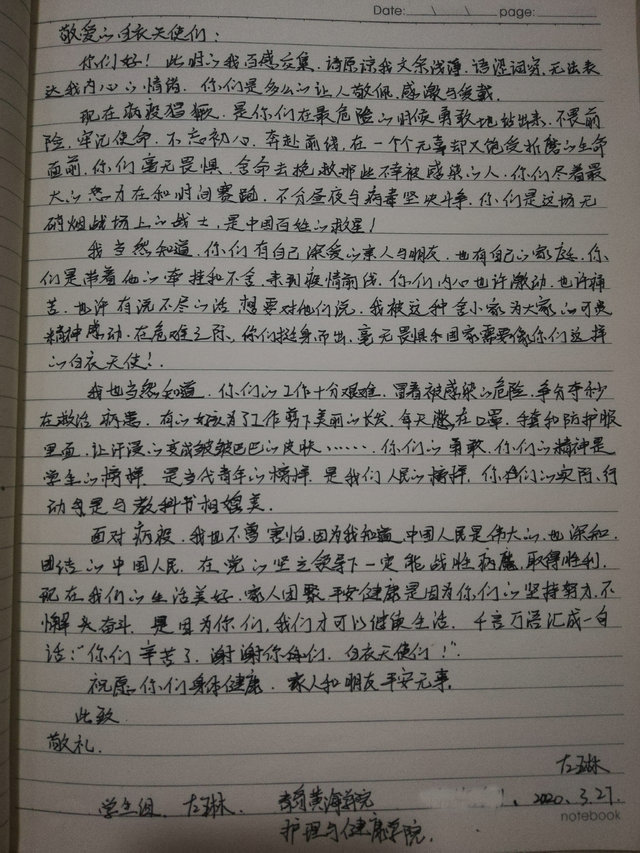 Date: \ \ \ page:
敬爱的白衣天使们：
你们好！此时的我百感交集，请原谅我文采浅薄，语涩词穷，无法表
达我内心的情绪，你们是多么的让人敬佩，感激与爱戴。
现在病疫猖獗，是你们在最危险的时候勇敢地站出来，不畏前
险，牢记使命，不忘初心，奔赴前线，在一个个无辜却又饱受折磨的生命
面前，你们毫无畏惧，舍命去挽救那些不幸被感染的人，你们尽着最
大的努力在和时间赛跑，不分昼夜与病毒坚决斗争，你们是这场无
硝烟战场上的战士，是中国百姓的救星！
我当然知道，你们有自己深爱的亲人与朋友，也有自己的家庭，你
们是带着他的牵挂和不舍，来到疫情前线，你们内心也许激动，也许痛
苦，也许有说不尽的话想要对他们说，我被这种舍小家为大家的可贵
精神感动，在危难之际，你们挺身而出，毫无畏惧，国家需要像你们这样
的白衣天使！
我也当然知道，你们的工作十分艰难，冒着被感染的危险，争分夺秒
在救治病患，有的女孩为了工作剪下美丽的长发，每天憋在口罩，手套和防护服
里面，让汗浸的变成皱皱巴巴的皮肤……，你们的勇敢，你们的精神是
学生的榜样，是当代青年的榜样，是我们人民的榜样，你们的实际行
动更是与教科书相媲美。
面对病疫，我也不曾害怕，因为我知道，中国人民是伟大的，也深知，
团结的中国人民，在党的坚立领导下一定能战胜病魔，取得胜利，
现在我们的生活美好，家人团聚，平安健康是因为你们的坚持努力，不
懈奋斗，是因为你们，我们才可以继续生活，千言万语汇成一句
话："你们辛苦了，谢谢你们，白衣天使们！"
祝愿你们身体健康，家人和朋友平安无事。
此致
敬礼。
左琳
学生组，左琳，青岛黄海学院，2020.3.27.
护理与健康学院.
notebook